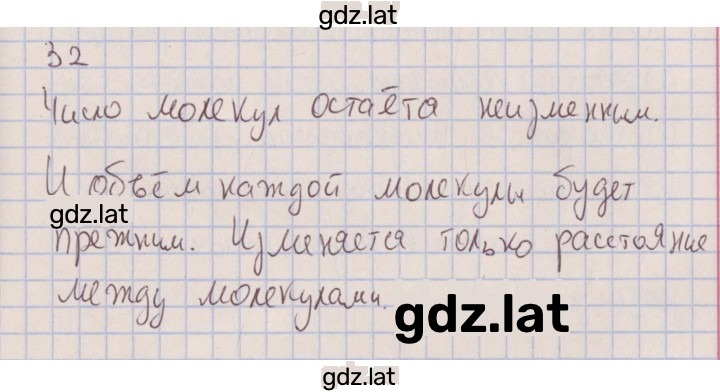 gdz.lat
32
Число молекул остаёта неизменным.
И объём каждой молекулы будет
gdz.lat
прежним. Изменяется только расстояние
между молекулами.
gdz.lat
gdz.lat